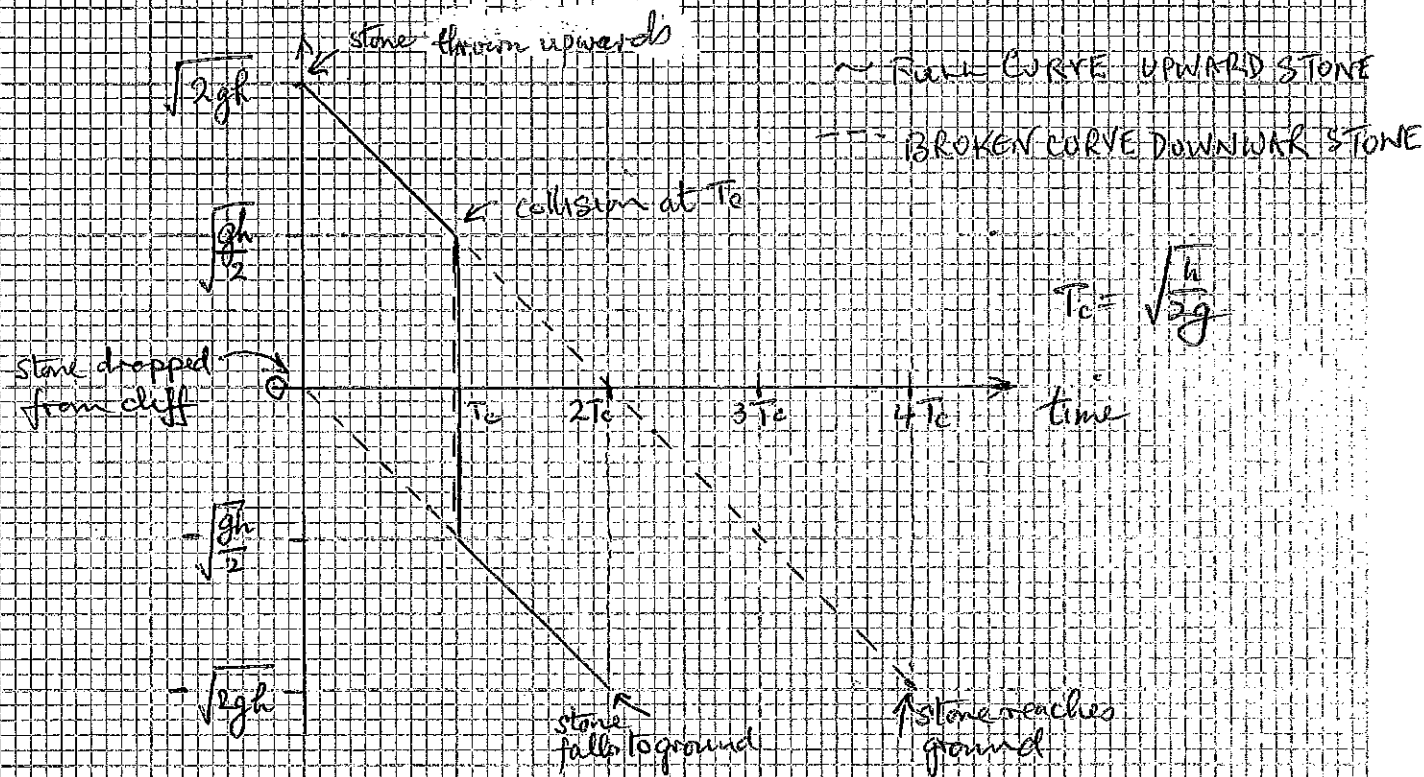 stone thrown upwards
√2gh
~ FULL CURVE UPWARD STONE
--- BROKEN CURVE DOWNWAR STONE
collision at Tc
√gh/2
Tc = √h/2g
stone dropped
from cliff
O
Tc 2Tc 3Tc 4Tc time
-√gh/2
-√2gh
stone
falls to ground
stone reaches
ground